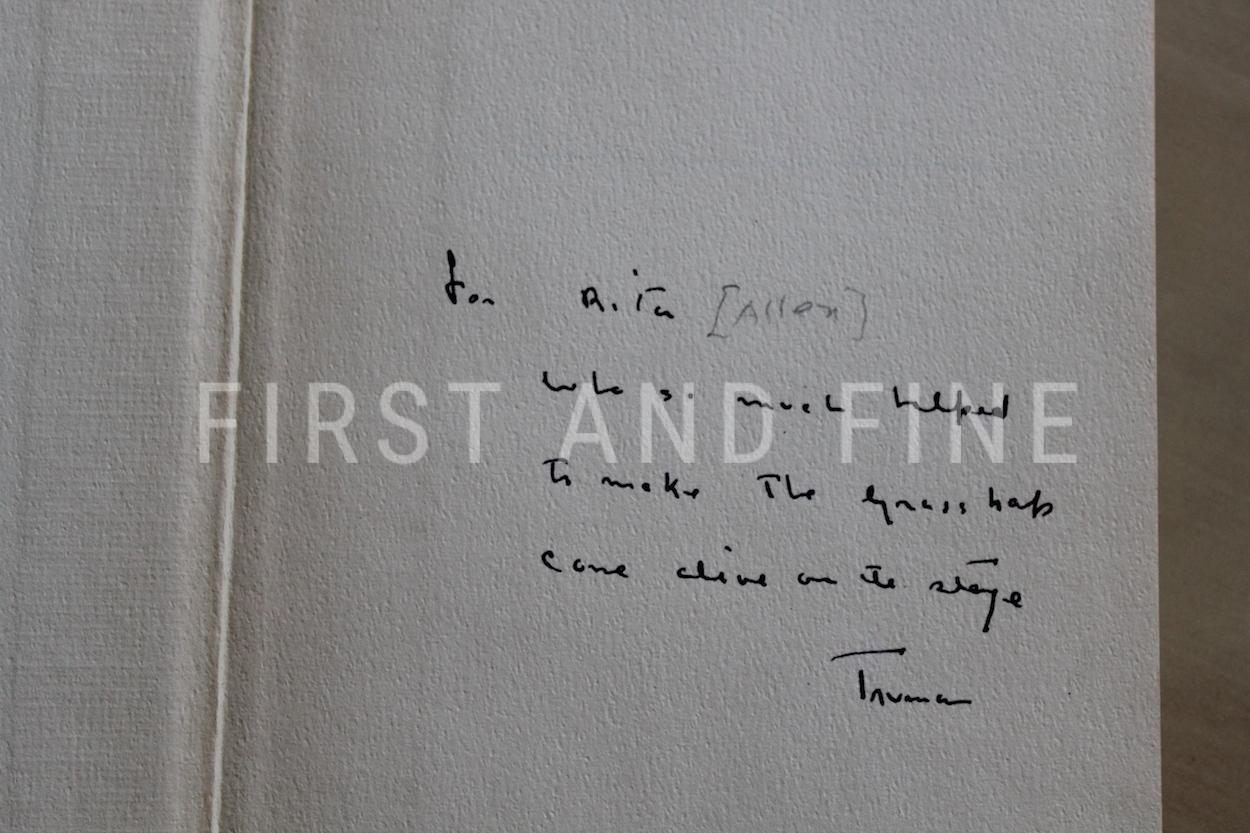 for Rita [Allen]
who so much helped
FIRST AND FINE
to make The Grass harp
come alive on the stage
Truman